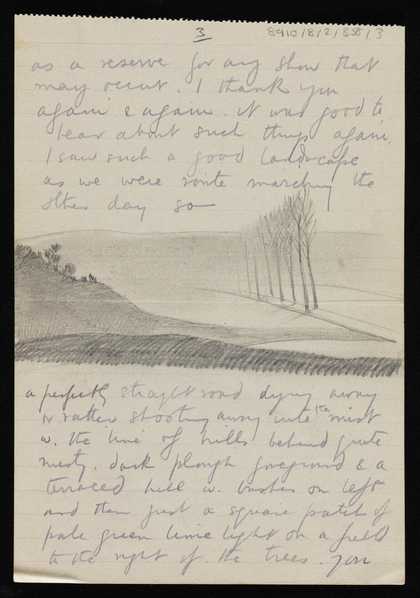 3
8910/8/2/ /3
as a reserve for any show that
may occur. I thank you
again & again. it was good to
hear about such things again.
I saw such a good landscape
as we were route marching the
other day so
a perfectly straight road dying away
or rather shooting away into the mist
w. the line of hills behind quite
misty. dark plough foreground & a
terraced hill w. bushes on left
and then just a square patch of
pale green lime light on a field
to the right of the trees. you